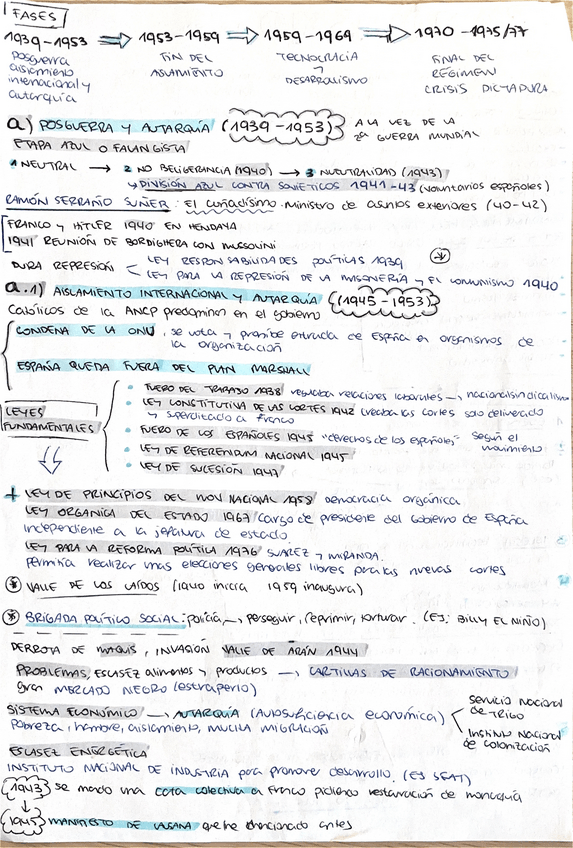 FASES
1939-1953 ⇒ 1953-1959 ⇒ 1959-1969 ⇒ 1970-1975/77
posguerra aislamiento internacional y autarquía
FIN DEL AISLAMIENTO
TECNOCRACIA Y DESARROLLISMO
FINAL DEL REGIMEN CRISIS DICTADURA
a) POSGUERRA Y AUTARQUÍA (1939-1953) A LA VEZ DE LA 2ª GUERRA MUNDIAL
ETAPA AZUL O FALANGISTA
1 NEUTRAL → 2 NO BELIGERANCIA (1940) → 3 NEUTRALIDAD (1943)
↳ DIVISIÓN AZUL CONTRA SOVIÉTICOS 1941-43 (voluntarios españoles)
RAMÓN SERRAÑO SUÑER: El cuñadísimo. ministro de asuntos exteriores (40-42)
FRANCO Y HITLER 1940 EN HENDAYA
1941 REUNIÓN DE BORDIGHERA CON MUSSOLINI
DURA REPRESIÓN
LEY RESPONSABILIDADES POLÍTICAS 1939
LEY PARA LA REPRESIÓN DE LA MASONERÍA Y EL COMUNISMO 1940
a.1) AISLAMIENTO INTERNACIONAL Y AUTARQUÍA (1945-1953)
Católicos de la ANCP predominan en el gobierno
CONDENA DE LA ONU, se vota y prohíbe entrada de España en organismos de
la organización
ESPAÑA QUEDA FUERA DEL PLAN MARSHALL
LEYES FUNDAMENTALES
• FUERO DEL TRABAJO 1938 regulaba relaciones laborales → nacionalsindicalismo
• LEY CONSTITUTIVA DE LAS CORTES 1942 creaba las cortes solo
y Franco
• FUERO DE LOS ESPAÑOLES 1945 "derechos de los españoles" según el movimiento
• LEY DE REFERENDUM NACIONAL 1945
• LEY DE SUCESIÓN 1947
+ LEY DE PRINCIPIOS DEL MOV NACIONAL 1958 democracia orgánica
LEY ORGANICA DEL ESTADO 1967 cargo de presidente del Gobierno de España
independiente a la jefatura de estado.
LEY PARA LA REFORMA POLÍTICA 1976 SUAREZ Y MIRANDA.
Permitía realizar unas elecciones generales libres para las nuevas cortes
* VALLE DE LOS CAÍDOS (1940 inicia 1959 inaugura)
* BRIGADA POLÍTICO SOCIAL: policía → perseguir, reprimir, torturar. (EJ: BILLY EL NIÑO)
DERROTA DE maquis, INVASIÓN VALLE DE ARÁN 1944
PROBLEMAS, ESCASEZ alimentos y productos → CARTILLAS DE RACIONAMIENTO
Gran MERCADO NEGRO (estraperlo)
SISTEMA ECONÓMICO → AUTARQUÍA (Autosuficiencia económica)
Servicio Nacional de Trigo
Instituto Nacional de colonización
Pobreza, hambre, aislamiento, MUCHA MIGRACIÓN
ESCASEZ ENERGÉTICA
INSTITUTO NACIONAL DE INDUSTRIA para promover desarrollo. (EJ SEAT)
1943 se mandó una carta colectiva a Franco pidiendo restauración de monarquía
↓
1945 MANIFIESTO DE LAUSANA que he mencionado antes